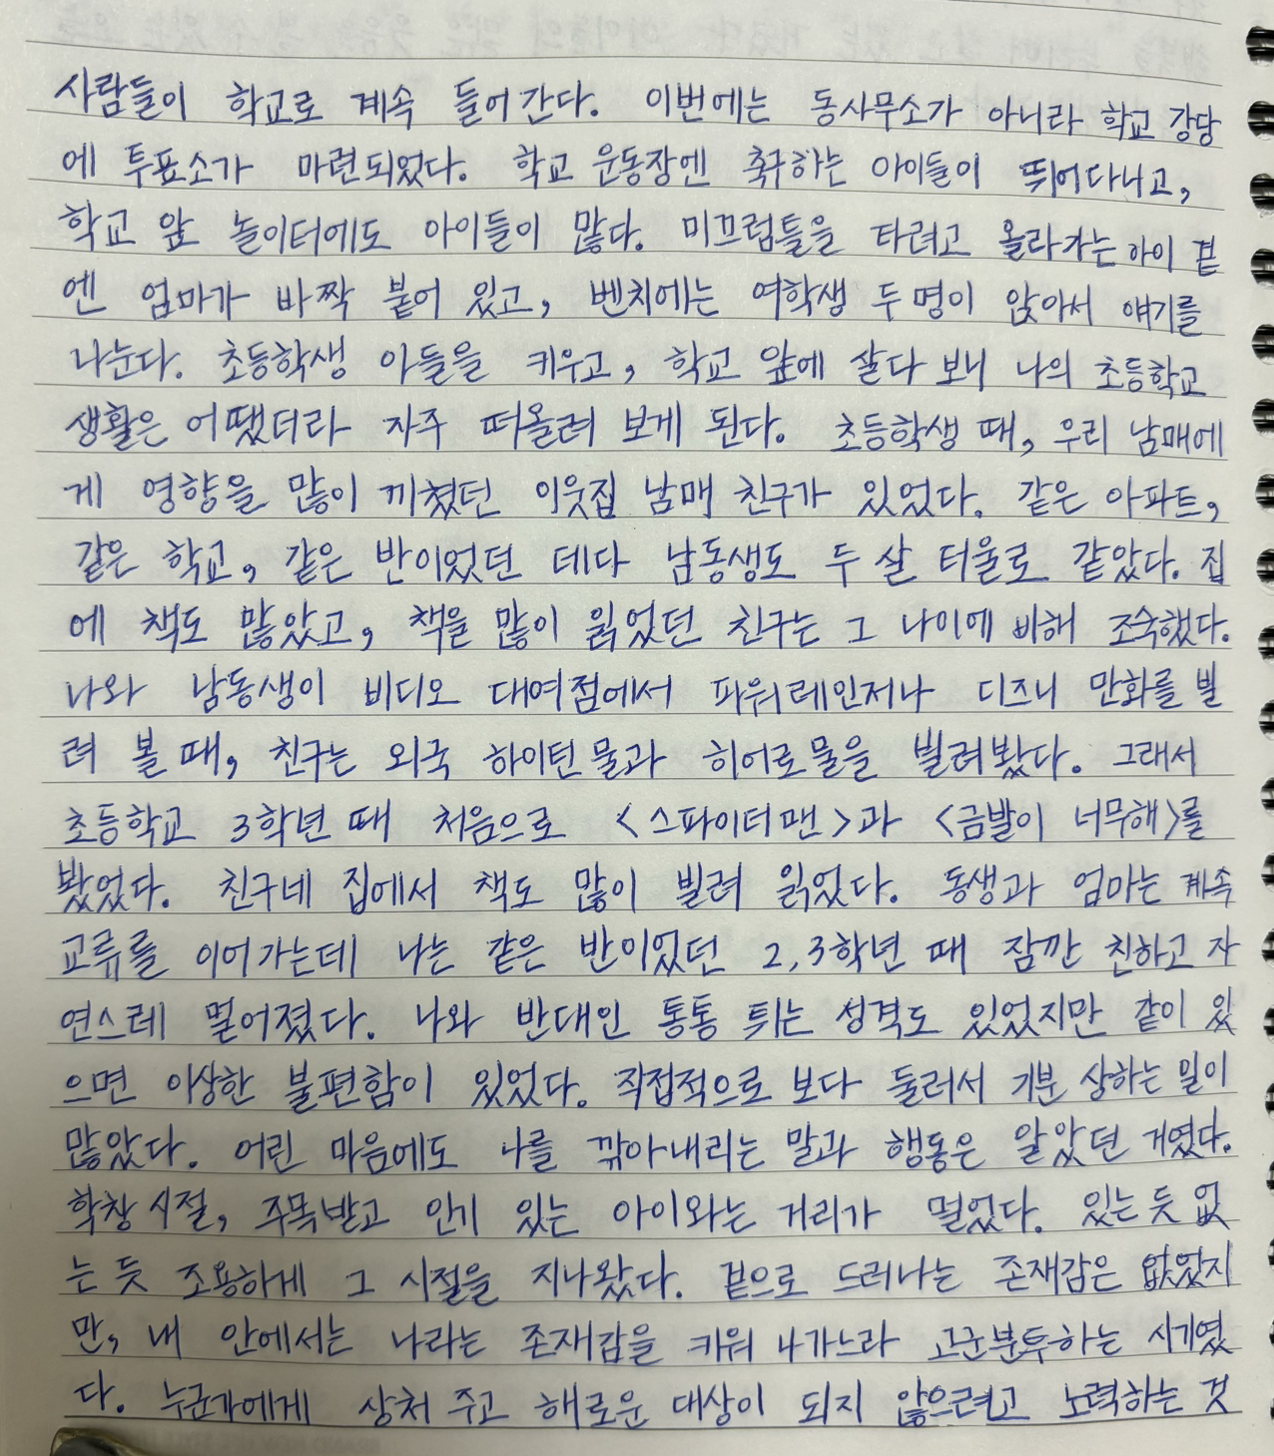 사람들이 학교로 계속 들어간다. 이번에는 동사무소가 아니라 학교 강당
에 투표소가 마련되었다. 학교 운동장엔 축구하는 아이들이 뛰어다니고,
학교 앞 놀이터에도 아이들이 많다. 미끄럼틀을 타려고 올라가는 아이 곁
엔 엄마가 바짝 붙어 있고, 벤치에는 여학생 두 명이 앉아서 얘기를
나눈다. 초등학생 아들을 키우고, 학교 앞에 살다 보니 나의 초등학교
생활은 어땠더라 자주 떠올려 보게 된다. 초등학생 때, 우리 남매에
게 영향을 많이 끼쳤던 이웃집 남매 친구가 있었다. 같은 아파트,
같은 학교, 같은 반이었던 데다 남동생도 두 살 터울로 같았다. 집
에 책도 많았고, 책을 많이 읽었던 친구는 그 나이에 비해 조숙했다.
나와 남동생이 비디오 대여점에서 파워레인저나 디즈니 만화를 빌
려 볼 때, 친구는 외국 하이틴물과 히어로물을 빌려봤다. 그래서
초등학교 3학년 때 처음으로 <스파이더맨>과 <금발이 너무해>를
봤었다. 친구네 집에서 책도 많이 빌려 읽었다. 동생과 엄마는 계속
교류를 이어가는데 나는 같은 반이었던 2,3학년 때 잠깐 친하고 자
연스레 멀어졌다. 나와 반대인 통통 튀는 성격도 있었지만 같이 있
으면 이상한 불편함이 있었다. 직접적으로 보다 둘러서 기분 상하는 일이
많았다. 어린 마음에도 나를 깎아내리는 말과 행동은 알았던 거였다.
학창 시절, 주목받고 인기 있는 아이와는 거리가 멀었다. 있는 듯 없
는 듯 조용하게 그 시절을 지나왔다. 겉으로 드러나는 존재감은 없었지
만, 내 안에서는 나라는 존재감을 키워 나가느라 고군분투하는 시기였
다. 누군가에게 상처 주고 해로운 대상이 되지 않으려고 노력하는 것